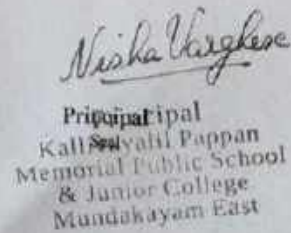 Nisha Varghese
Principal
Pappan
Memorial Public School
& Junior College
Mundakayam East